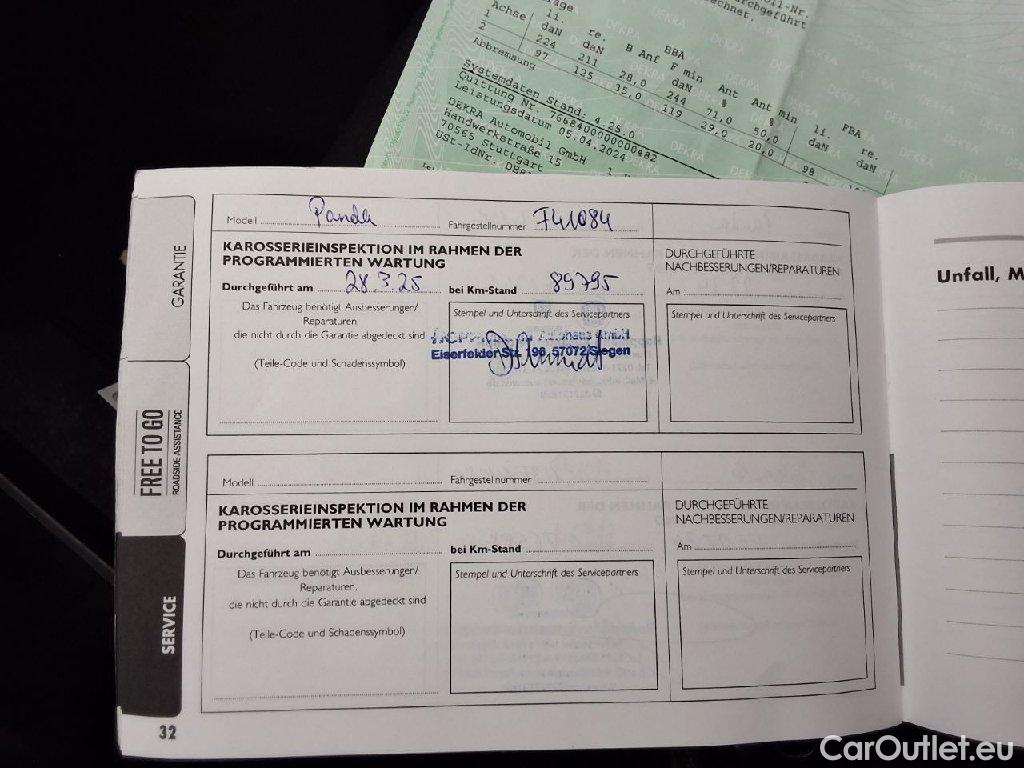 oll-Nr.
urchgeführt
chnet.
Achse li. re. BBA
daN daN B Anf F min Ant Ant min li. FBA re.
1 224 211 28,0 244 71,0 50,0 daN daN
2 97 125 35,0 119 29,0 20,0 98
Abbremsung
Systemdaten Stand: 4.25.0
Quittung Nr. 7668400000000482
Leistungsdatum 05.04.2024
DEKRA Automobil GmbH
Handwerkstraße 15
70565 Stuttgart
USt-IdNr. DE8
Modell Panda Fahrgestellnummer 741084
KAROSSERIEINSPEKTION IM RAHMEN DER
PROGRAMMIERTEN WARTUNG
Durchgeführt am 28.3.25 bei Km-Stand 89795
Das Fahrzeug benötigt Ausbesserungen/
Reparaturen,
die nicht durch die Garantie abgedeckt sind
(Teile-Code und Schadenssymbol)
Stempel und Unterschrift des Servicepartners
Eiserfelder Str. 196, 57072 Siegen
DURCHGEFÜHRTE
NACHBESSERUNGEN/REPARATUREN
Am
Stempel und Unterschrift des Servicepartners
Modell Fahrgestellnummer
KAROSSERIEINSPEKTION IM RAHMEN DER
PROGRAMMIERTEN WARTUNG
Durchgeführt am bei Km-Stand
Das Fahrzeug benötigt Ausbesserungen/
Reparaturen,
die nicht durch die Garantie abgedeckt sind
(Teile-Code und Schadenssymbol)
Stempel und Unterschrift des Servicepartners
DURCHGEFÜHRTE
NACHBESSERUNGEN/REPARATUREN
Am
Stempel und Unterschrift des Servicepartners
GARANTIE
FREE TO GO
ROADSIDE ASSISTANCE
SERVICE
32
Unfall, M
CarOutlet.eu